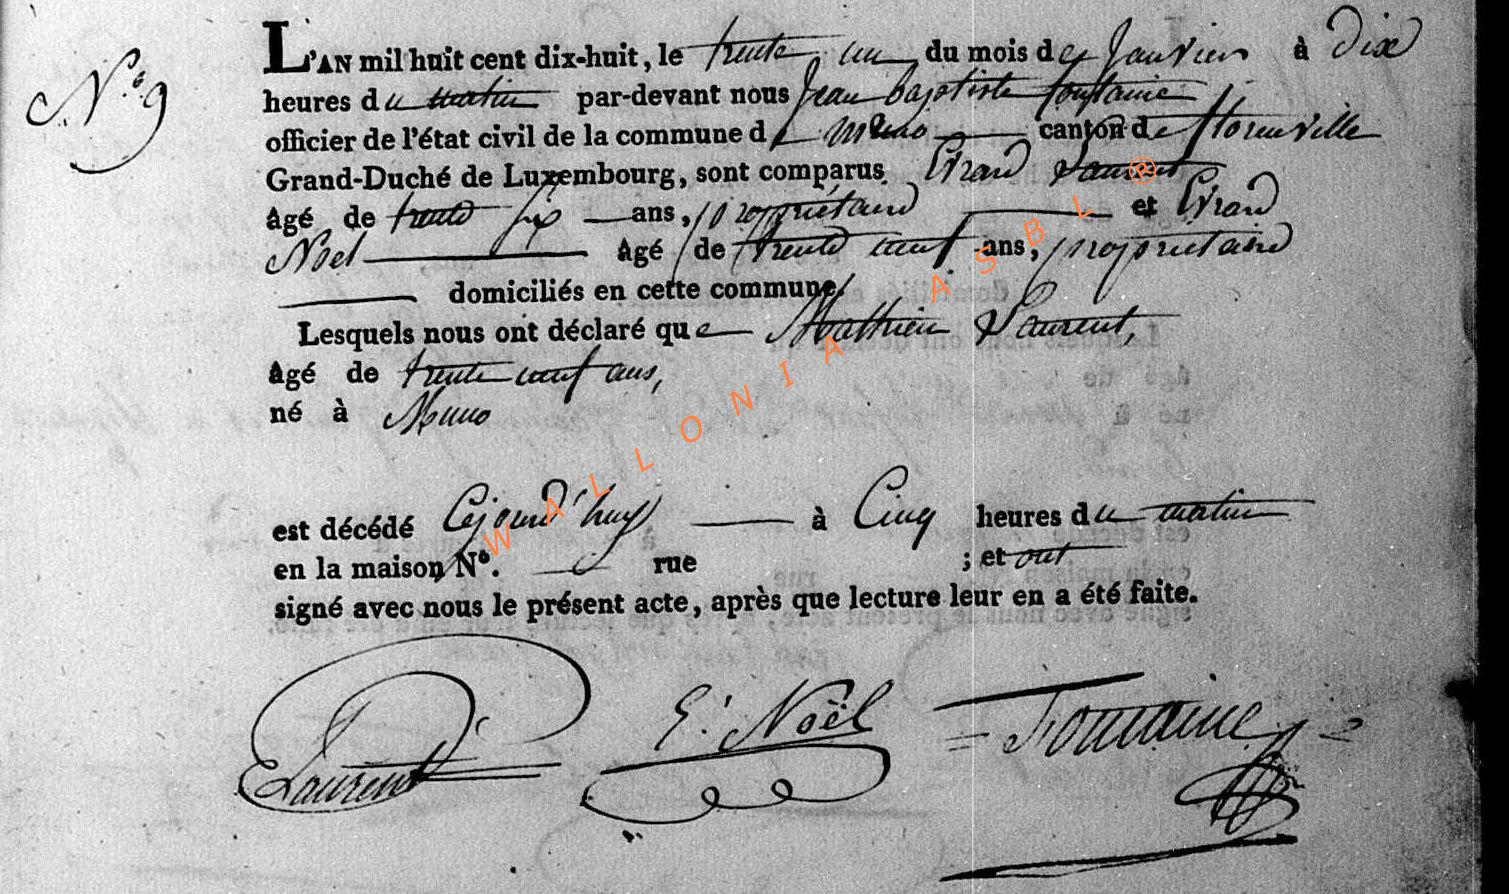 N.° 9
L'AN mil huit cent dix-huit, le trente un du mois de Janvier à Dix
heures du matin par-devant nous Jean baptiste fontaine
officier de l'état civil de la commune de Muno canton de florenville
Grand-Duché de Luxembourg, sont comparus Evrard Laurent
âgé de trente six ans, propriétaire et Evrard
Noel âgé de trente neuf ans, propriétaire
domiciliés en cette commune
Lesquels nous ont déclaré que Mathieu Laurent,
âgé de trente neuf ans,
né à Muno
est décédé Cejourd'huy à Cinq heures du matin
en la maison N°. rue ; et ont
signé avec nous le présent acte, après que lecture leur en a été faite.
Laurent E. Noël Fontaine
WALLONIA ASBL ®